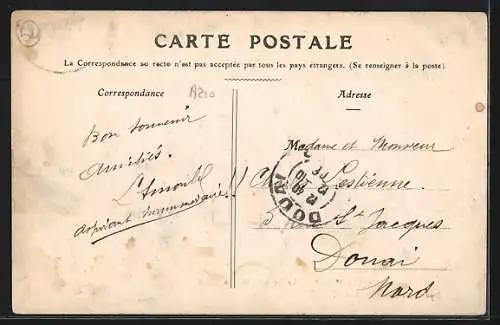 CARTE POSTALE
La Correspondance au recto n'est pas acceptée par tous les pays étrangers. (Se renseigner à la poste)
Correspondance
Adresse
Bon souvenir
Amitiés.
Aspirant
Madame et Monsieur
Ch Lestienne
5 rue St Jacques
Douai
Nord
DOUAI